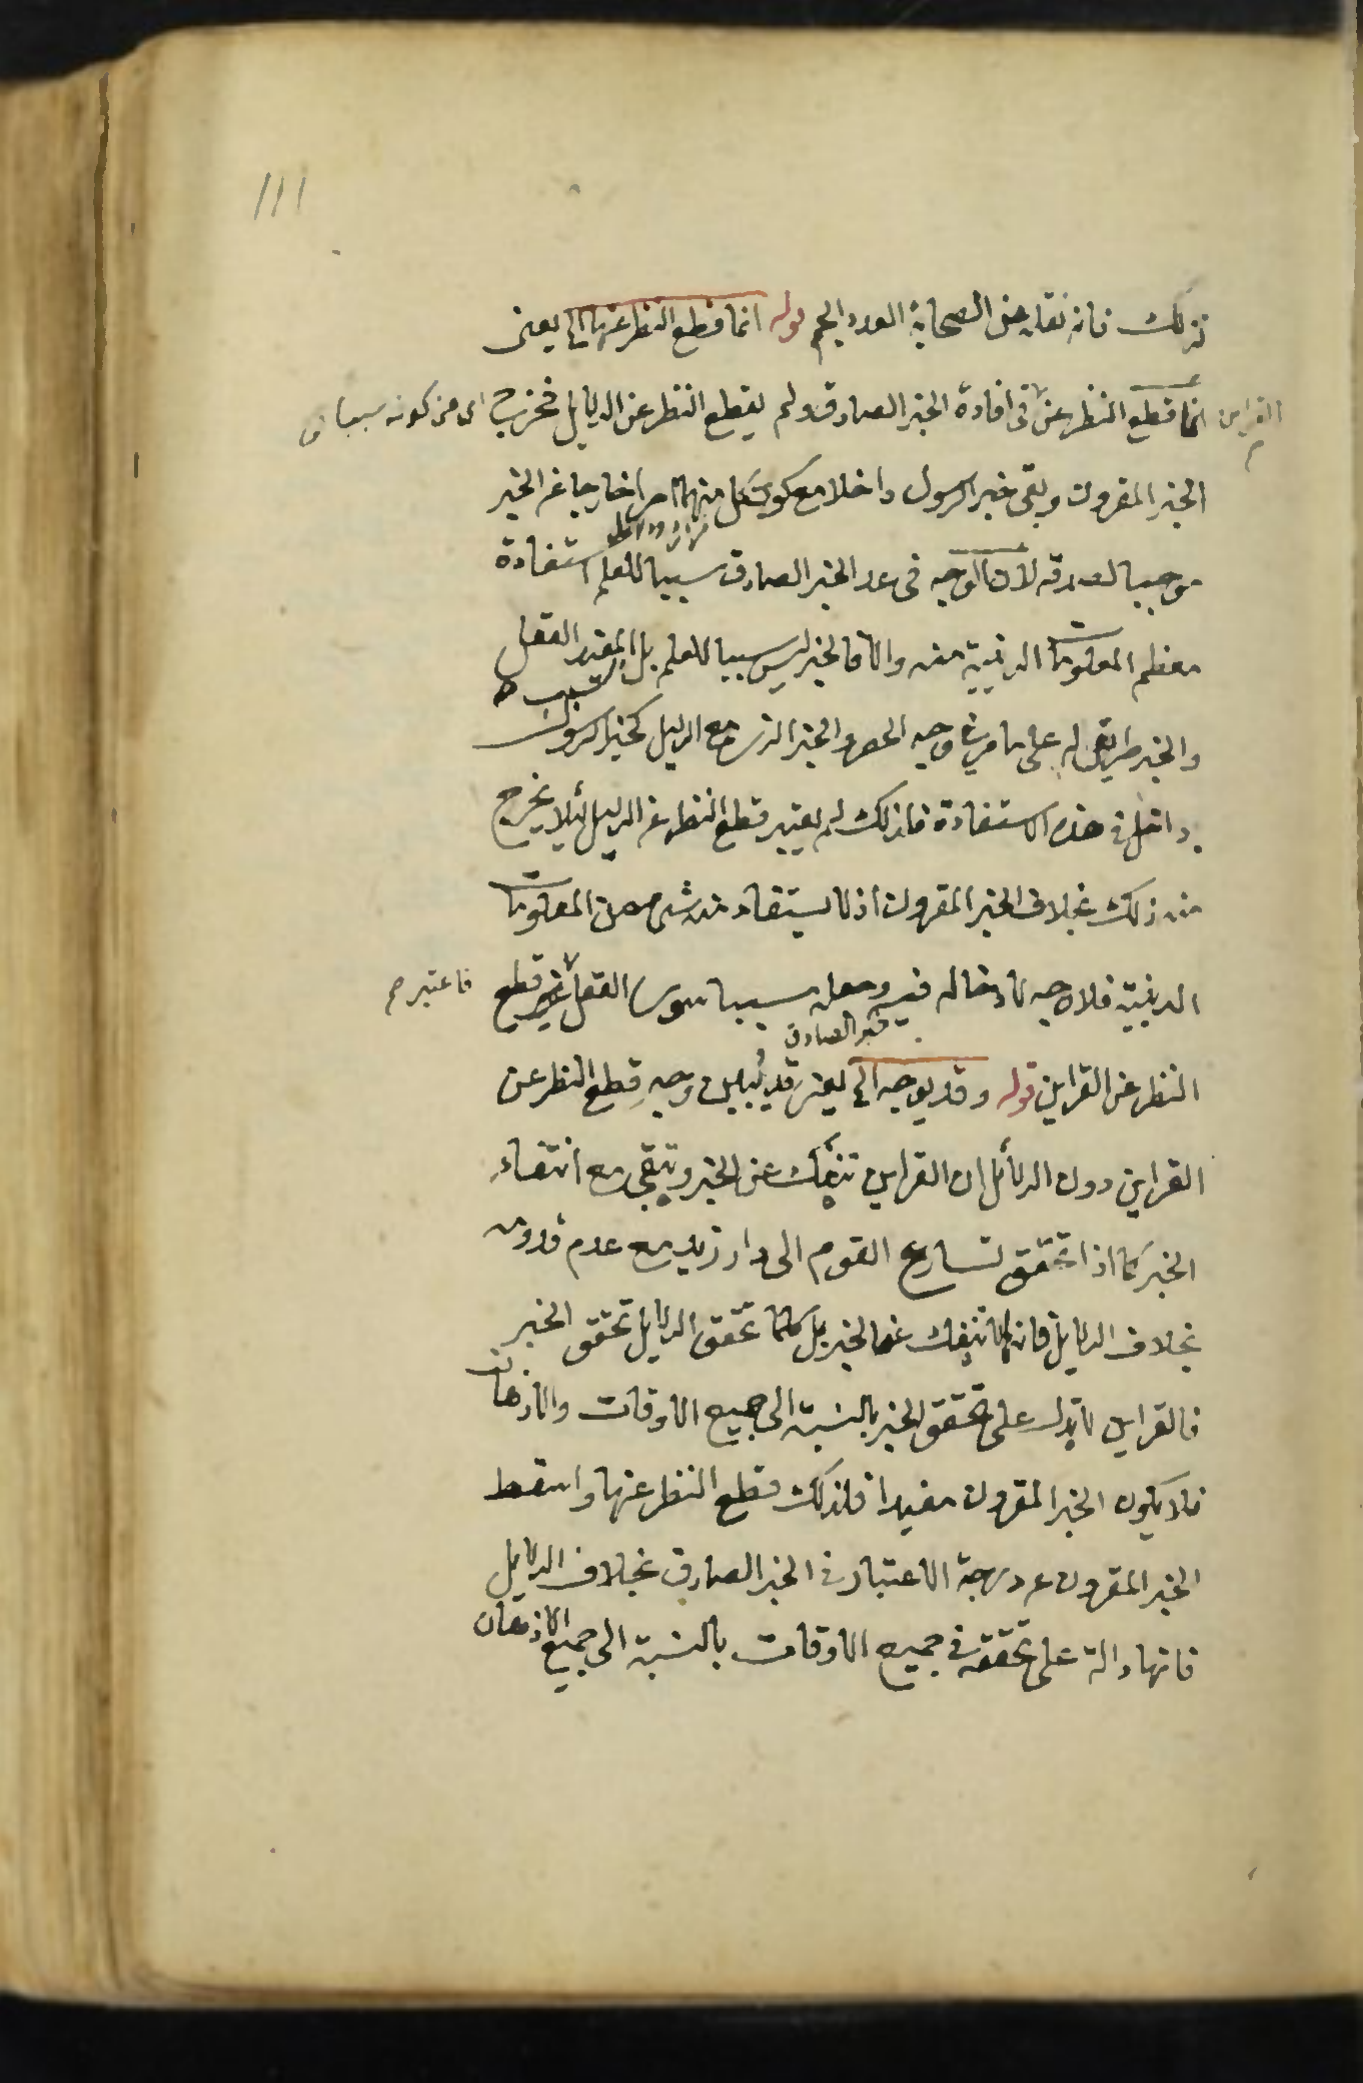 ١١١
ذلك فانه نقله من الصحابة العدد الجم قوله انما قطع النظر عنها الخ يعنى
القراين م
انما قطع النظر عن فى افادة الخبر الصادق ولم يقطع النظر عن الدلايل فخرج اى من كونه سببا
الخبر المقرون وبقى خبر الرسول داخلا مع كون كل منهما امرا خارجا عن الخبر
موجبا لصدقه لان الوجه فى عد الخبر الصادق سببا للعلم استفادة
معظم المعلومات الدينية منه والا فالخبر ليس سببا للعلم بل المفيد العقل
والخبر طريق له على ما مر فى وجه الحصر والخبر الذى مع الدليل كخبر الرسول
داخل فى هذه الاستفادة فلذلك لم يعتبر قطع النظر عن الدليل لئلا يخرج
منه ذلك بخلاف الخبر المقرون اذ لا يستفاد منه شىء من المعلومات
الدينية فلا وجه لادخاله فيه وجعله سببا سوى العقل قطع
فاعتبر م
الخبر الصادق
النظر عن القراين قوله وقد يوجه الخ يعنى قد يبين وجه قطع النظر عن
القراين دون الدلائل ان القراين تنفك عن الخبر وتبقى مع انتفاء
الخبر كما اذا تحقق تسارع القوم الى دار زيد مع عدم قدومه
بخلاف الدلايل فانه لا تنفك عن الخبر بل كلما تحقق الدلايل تحقق الخبر
فالقراين لا تدل على تحقق الخبر بالنسبة الى جميع الاوقات والاذهان
فلا يكون الخبر المقرون مفيدا فلذلك قطع النظر عنها واسقط
الخبر المقرون عن درجة الاعتبار فى الخبر الصادق بخلاف الدلايل
فانها دالة على تحققه فى جميع الاوقات بالنسبة الى جميع الاذهان